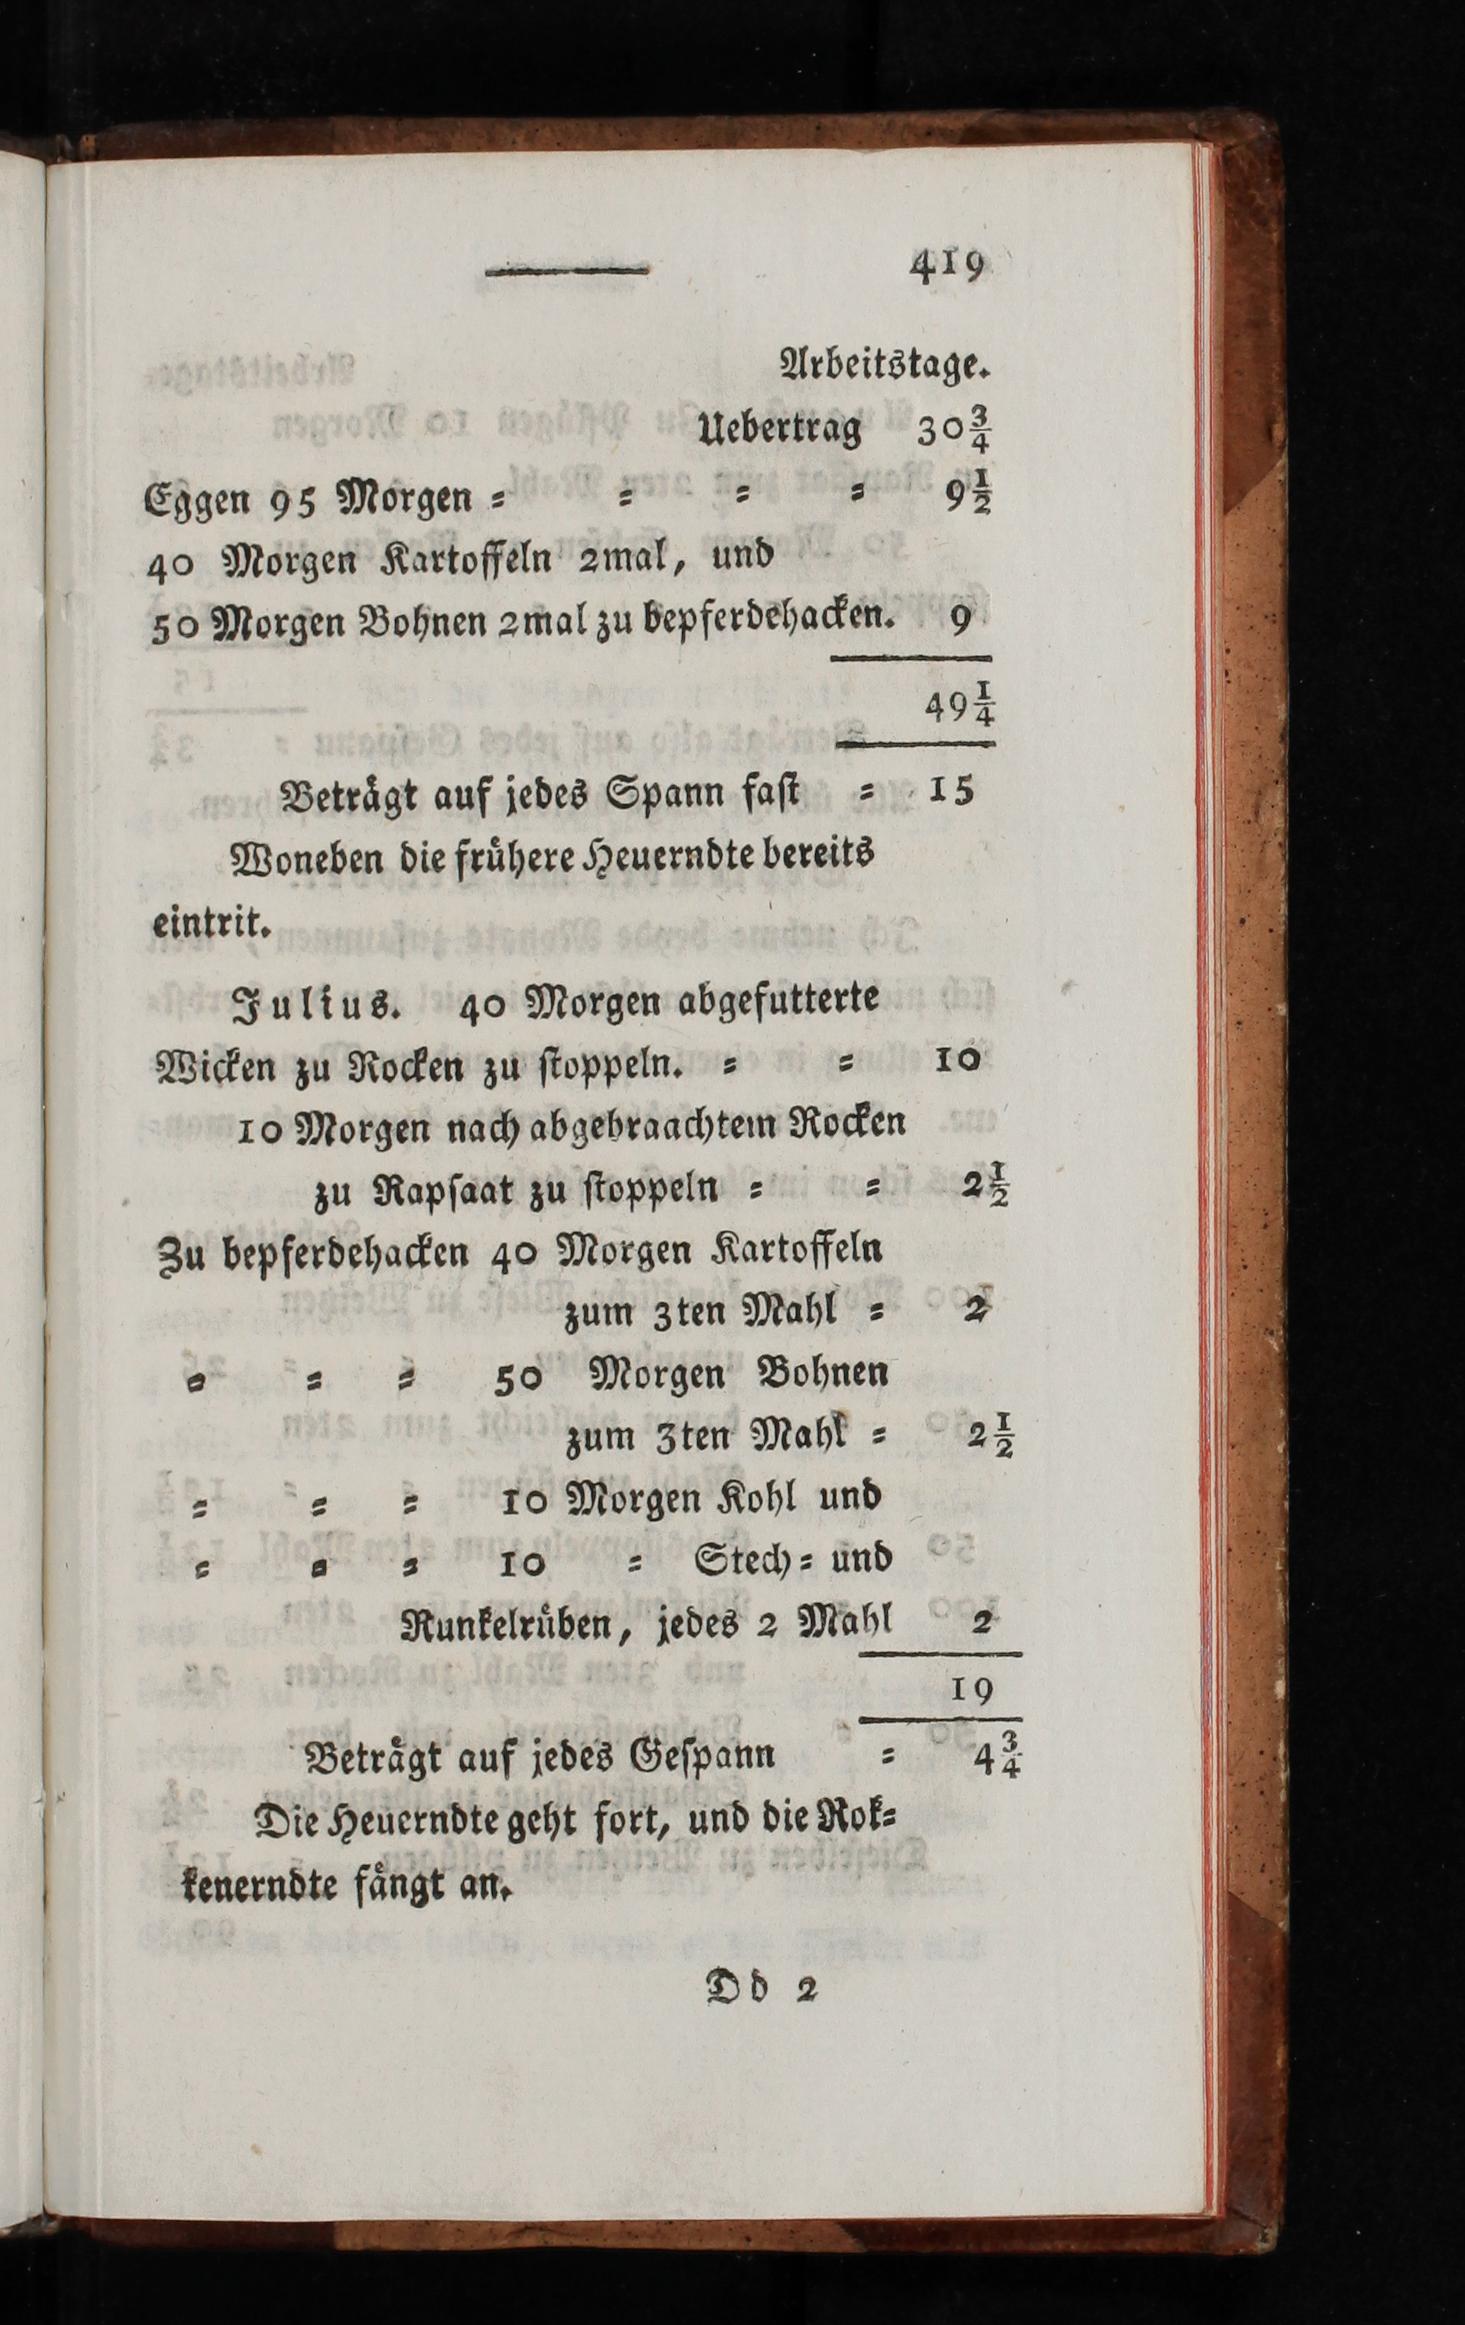 419
Arbeitstage.
Uebertrag 30¾
Eggen 95 Morgen = = = = 9½
40 Morgen Kartoffeln 2mal, und
50 Morgen Bohnen 2mal zu bepferdehacken. 9
49¼
Beträgt auf jedes Spann fast = 15
Woneben die frühere Heuerndte bereits
eintrit.
Julius. 40 Morgen abgefutterte
Wicken zu Rocken zu stoppeln. = = 10
10 Morgen nach abgebraachtem Rocken
zu Rapsaat zu stoppeln = = 2½
Zu bepferdehacken 40 Morgen Kartoffeln
zum 3ten Mahl = 2
= = = 50 Morgen Bohnen
zum 3ten Mahl = 2½
= = = 10 Morgen Kohl und
= = = 10 = Stech= und
Runkelrüben, jedes 2 Mahl 2
19
Beträgt auf jedes Gespann = 4¾
Die Heuerndte geht fort, und die Rok=
kenerndte fängt an.
Dd 2